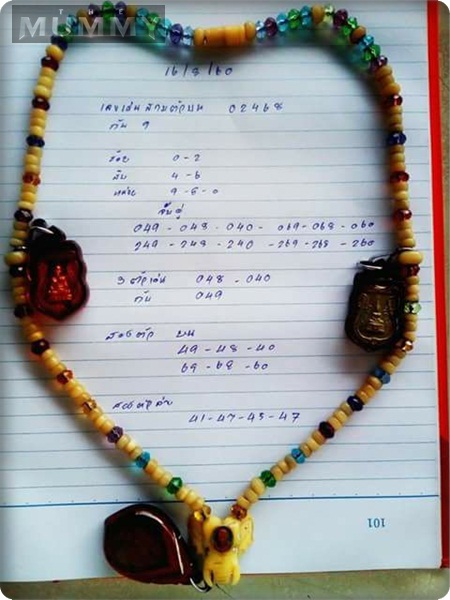 THE
MUMMY
16/8/60
เลขเด่นสามตัวบน 02468
กัน 9
ร้อย 0-2
สิบ 4-6
หน่วย 9-8-0
จับคู่
049-048-040-069-068-060
249-248-240-269-268-260
3 ตัวเด่น 048-040
กัน 049
สองตัว บน
49-48-40
69-68-60
สองตัวล่าง
41-47-45-47
101